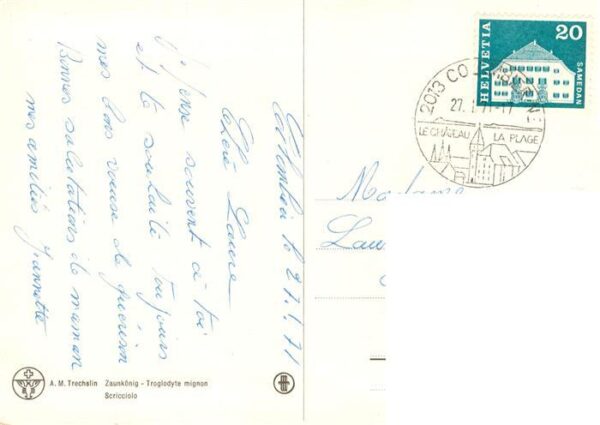 Colombier le 27.1.71
Chère Laure
J'pense souvent à toi
et te souhaite toujours
mes bons voeux de guérison
Bonnes salutations de maman
mes amitiés Jeannette
A. M. Trechslin Zaunkönig – Troglodyte mignon
Scricciolo
HELVETIA
20
SAMEDAN
2013 CO
27. 1. 71-17
LE CHÂTEAU LA PLAGE
Madame
Lau